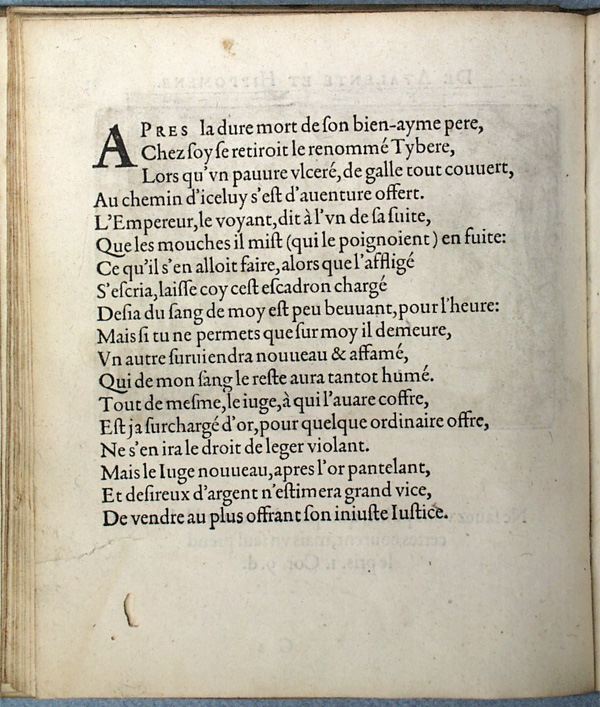 APRES la dure mort de ſon bien-ayme pere,
Chez ſoy ſe retiroit le renommé Tybere,
Lors qu'vn pauure vlceré, de galle tout couuert,
Au chemin d'iceluy s'eſt d'auenture offert.
L'Empereur, le voyant, dit à l'vn de ſa ſuite,
Que les mouches il miſt (qui le poignoient) en fuite:
Ce qu'il s'en alloit faire, alors que l'affligé
S'eſcria, laiſſe coy ceſt eſcadron chargé
Deſia du ſang de moy eſt peu beuuant, pour l'heure:
Mais ſi tu ne permets que ſur moy il demeure,
Vn autre ſuruiendra nouueau & affamé,
Qui de mon ſang le reſte aura tantot humé.
Tout de meſme, le iuge, à qui l'auare coffre,
Eſt ja ſurchargé d'or, pour quelque ordinaire offre,
Ne s'en ira le droit de leger violant.
Mais le Iuge nouueau, apres l'or pantelant,
Et deſireux d'argent n'eſtimera grand vice,
De vendre au plus offrant ſon iniuſte Iuſtice.